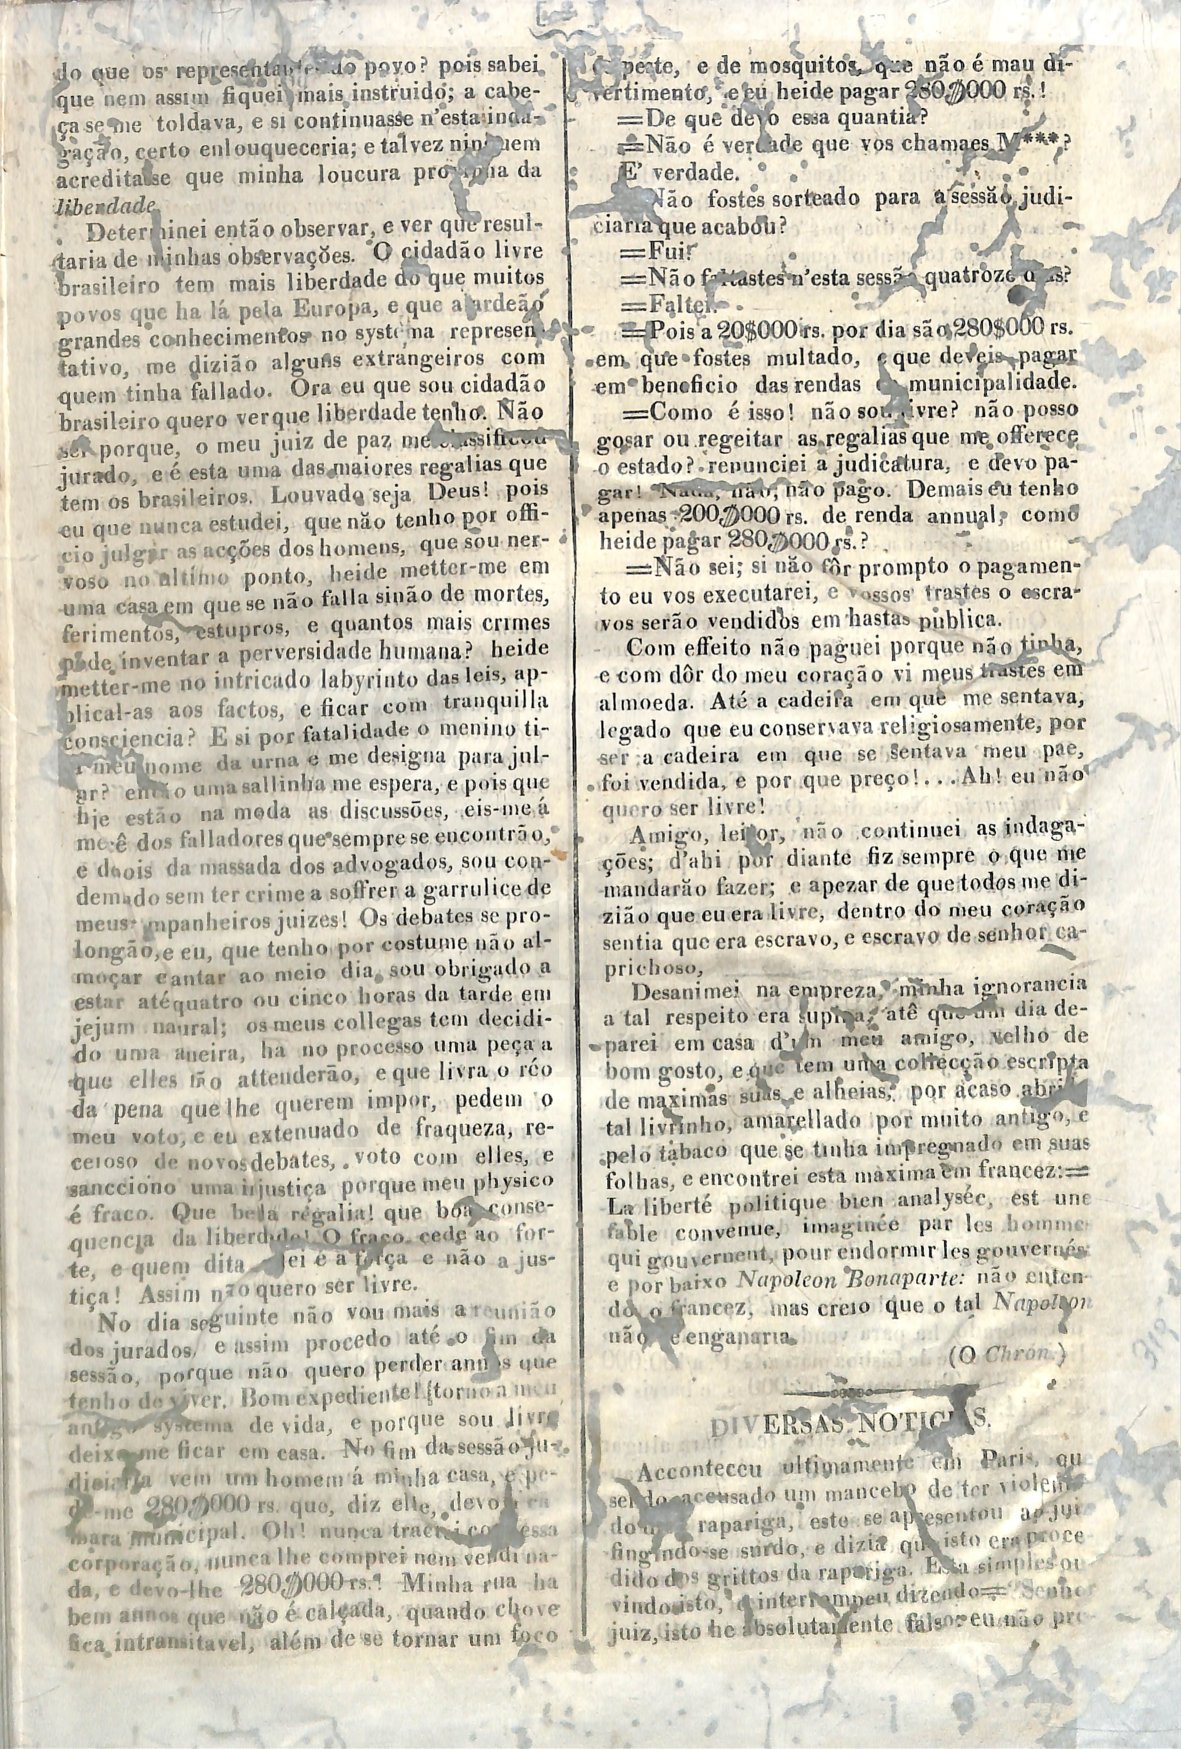 do que os representantes do povo? pois sabei
que nem assim fiquei mais instruido; a cabe-
ça se me toldava, e si continuasse n'esta inda-
gação, certo enlouqueceria; e talvez ninguem
acreditasse que minha loucura provinha da
liberdade
Determinei então observar, e ver que resul-
taria de minhas observações. O cidadão livre
brasileiro tem mais liberdade do que muitos
povos que ha lá pela Europa, e que alardeão
grandes conhecimentos no systema represen-
tativo, me dizião alguns extrangeiros com
quem tinha fallado. Ora eu que sou cidadão
brasileiro quero ver que liberdade tenho. Não
sei porque, o meu juiz de paz me classificou
jurado, e é esta uma das maiores regalias que
tem os brasileiros. Louvado seja Deus! pois
eu que nunca estudei, que não tenho por offi-
cio julgar as acções dos homens, que sou ner-
voso no ultimo ponto, heide metter-me em
uma casa em que se não falla sinão de mortes,
ferimentos, estupros, e quantos mais crimes
póde inventar a perversidade humana? heide
metter-me no intricado labyrinto das leis, ap-
plical-as aos factos, e ficar com tranquilla
consciencia? E si por fatalidade o menino ti-
meu nome da urna e me designa para jul-
ar? então uma sallinha me espera, e pois que
hje estão na moda as discussões, eis-me á
me ê dos falladores que sempre se encontrão,
e dois da massada dos advogados, sou con-
demado sem ter crime a soffrer a garrulice de
meus mpanheiros juizes! Os debates se pro-
longão, e eu, que tenho por costume não al-
moçar e antar ao meio dia, sou obrigado a
estar até quatro ou cinco horas da tarde em
jejum naural; os meus collegas tem decidi-
do uma aneira, ha no processo uma peça a
que elles não attenderão, e que livra o réo
da pena que lhe querem impor, pedem o
meu voto, e eu extenuado de fraqueza, re-
ceioso de novos debates, voto com elles, e
sancciono uma injustiça porque meu physico
é fraco. Que bella regalia! que boa conse-
quencia da liberdade! O fraco cede ao for-
te, e quem dita lei é a força e não a jus-
tiça! Assim não quero ser livre.
No dia seguinte não vou mais a reunião
dos jurados, e assim procedo até o fim da
sessão, porque não quero perder annos que
tenho de viver. Bom expediente! torno a meu
antigo systema de vida, e porque sou livre
deixo-me ficar em casa. No fim da sessão ju-
diciaria vem um homem á minha casa, e pe-
de-me 280$000 rs. que, diz elle, devo
mara municipal. Oh! nunca tractei com essa
corporação, nunca lhe comprei nem vendi na-
da, e devo-lhe 280$000 rs.! Minha rua ha
bem annos que não é calçada, quando chove
fica intransitavel, além de se tornar um foco
de peste, e de mosquitos, que não é mau di-
vertimento, e eu heide pagar 280$000 rs.!
=De que devo essa quantia?
=Não é verdade que vos chamaes M***?
E' verdade.
Não fostes sorteado para a sessão judi-
ciaria que acabou?
=Fui.
=Não faltastes n'esta sessão quatroze dias?
=Faltei.
=Pois a 20$000 rs. por dia são 280$000 rs.
em que fostes multado, e que deveis pagar
em beneficio das rendas municipalidade.
=Como é isso! não sou livre? não posso
gosar ou regeitar as regalias que me offerece
o estado? renunciei a judicatura, e devo pa-
gar! Nada, não, não pago. Demais eu tenho
apenas 200$000 rs. de renda annual, como
heide pagar 280$000 rs.?
=Não sei; si não fôr prompto o pagamen-
to eu vos executarei, e vossos trastes o escra-
vos serão vendidos em hasta publica.
Com effeito não paguei porque não tinha,
e com dôr do meu coração vi meus trastes em
almoeda. Até a cadeira em que me sentava,
legado que eu conservava religiosamente, por
ser a cadeira em que se sentava meu pae,
foi vendida, e por que preço!... Ah! eu não
quero ser livre!
Amigo, leitor, não continuei as indaga-
ções; d'ahi por diante fiz sempre o que me
mandarão fazer; e apezar de que todos me di-
zião que eu era livre, dentro do meu coração
sentia que era escravo, e escravo de senhor ca-
prichoso,
Desanimei na empreza, minha ignorancia
a tal respeito era supina, atê que um dia de-
parei em casa d'um meu amigo, velho de
bom gosto, e que tem uma collecção escripta
de maximas suas e alheias, por acaso abri
tal livrinho, amarellado por muito antigo, e
pelo tabaco que se tinha impregnado em suas
folhas, e encontrei esta maxima em francez:=
La liberté politique bien analysée, est une
fable convenue, imaginée par les hommes
qui gouvernent, pour endormir les gouvernés,
e por baixo Napoleon Bonaparte: não enten-
do o francez, mas creio que o tal Napoleon
não e enganaria.
(O Chron.)
DIVERSAS NOTICIAS.
Acconteceu ultimamente em Paris, qu
sendo accusado um mancebo de ter violenta-
do rapariga, este se apresentou ao jui
fingindo-se surdo, e dizia que isto era proce-
dido dos grittos da rapariga. Esta simples ou-
vindo isto, o interrompeu dizendo= Senhor
juiz, isto he absolutamente falso: eu não pro-